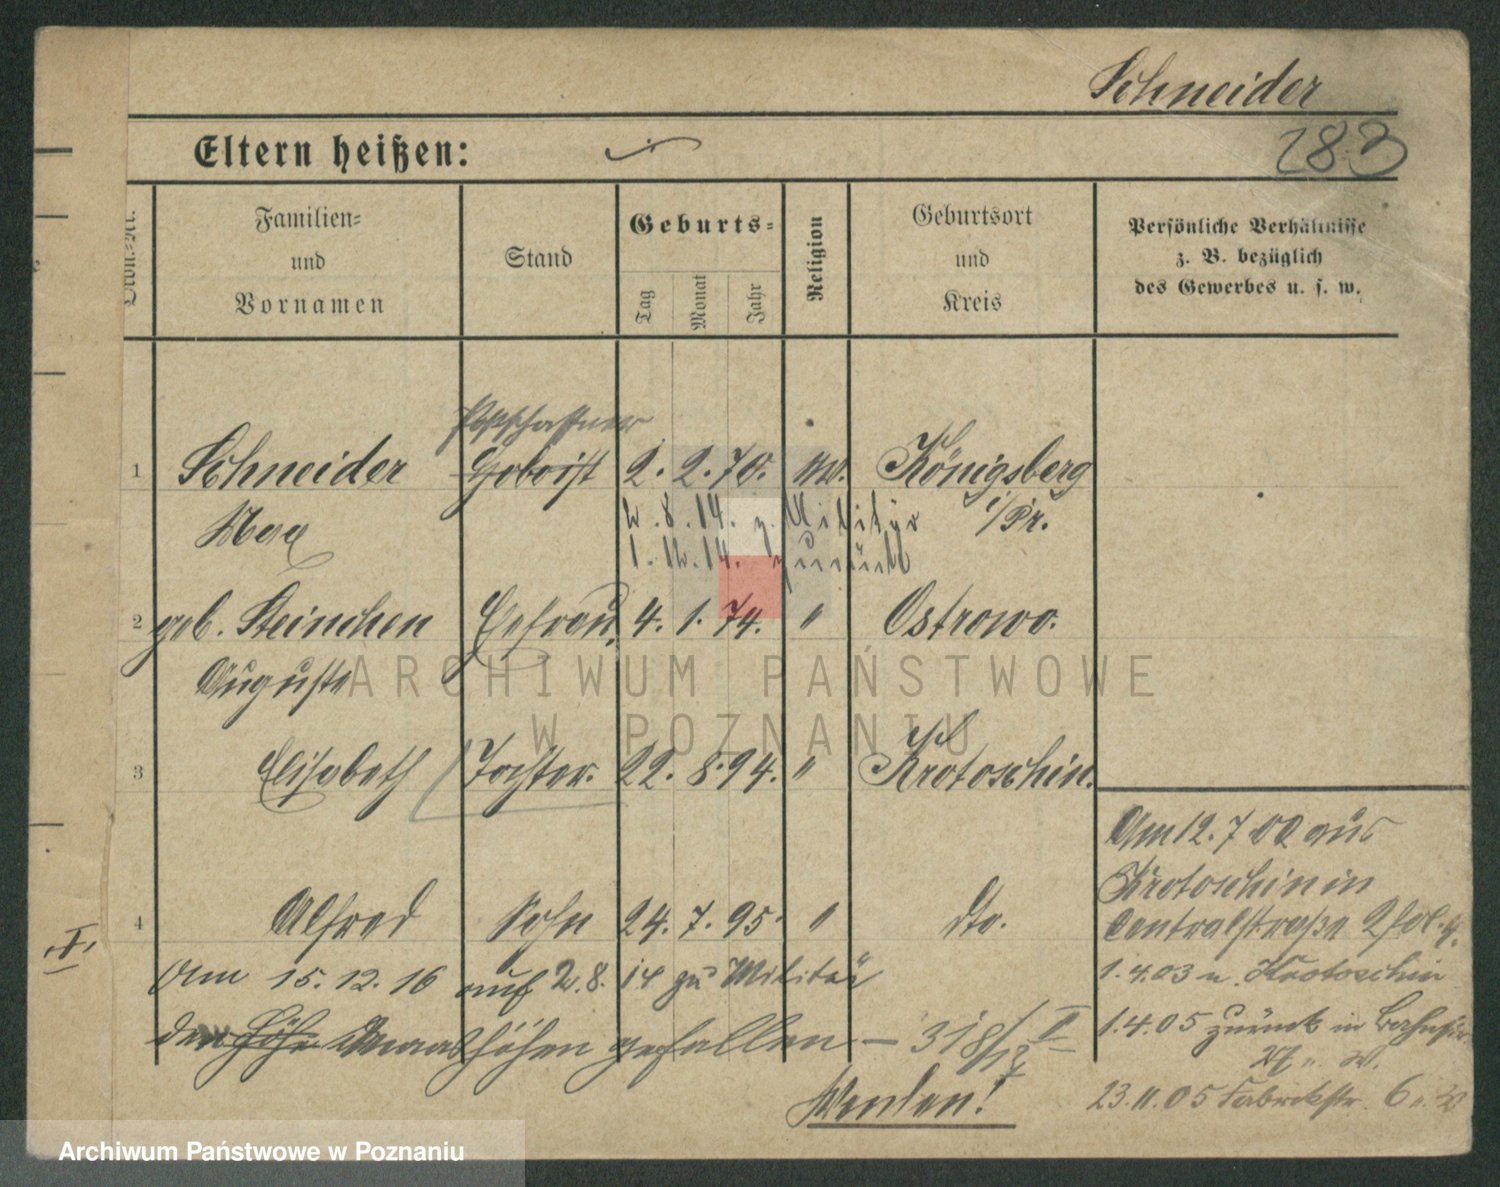 Schneider
283
Eltern heißen:
Familien- und Vornamen
Stand
Geburts-
Tag
Monat
Jahr
Religion
Geburtsort und Kreis
Persönliche Verhältnisse
z. B. bezüglich
des Gewerbes u. s. w.
Postschaffner
1 Schneider Hoboist 2. 2. 70. Königsberg
Max i/Pr.
2. 8. 14. z. Militär
1. 12. 14. zurück
2 geb. Steinchen Ehefrau 4. 1. 74. " Ostrowo.
Auguste
3 Elisabeth Tochter. 22. 8. 94. " Krotoschin.
4 Alfred Sohn 24. 7. 95. " dto.
2. 8. 14 zu Militär
Am 15. 12. 16 auf
den Höhe Maashöhen gefallen – 318/17 II
Wenden!
Am 12. 7 02 aus
Krotoschin in
Centralstraße 2
1. 4. 03 n. Krotoschin
1. 4. 05 zurück in
23. 11. 05 Fabrikstr. 6
I
ARCHIWUM PAŃSTWOWE
W POZNANIU
Archiwum Państwowe w Poznaniu